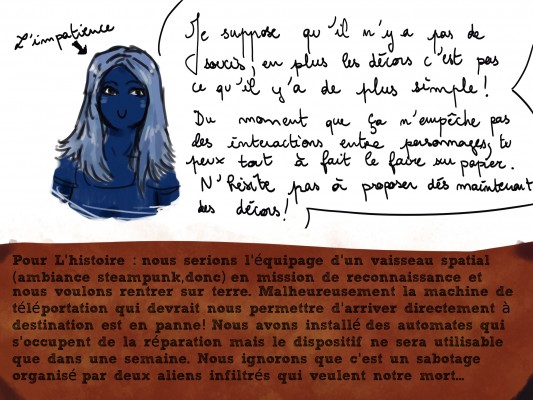 L'impatience
Je suppose qu'il n'y a pas de
soucis, en plus les décors c'est pas
ce qu'il y'a de plus simple!
Du moment que ça n'empêche pas
des interactions entre personnages, tu
peux tout à fait le faire sur papier.
N'hésite pas à proposer dés maintenant
des décors!
Pour L'histoire : nous serions l'équipage d'un vaisseau spatial
(ambiance steampunk,donc) en mission de reconnaissance et
nous voulons rentrer sur terre. Malheureusement la machine de
téléportation qui devrait nous permettre d'arriver directement à
destination est en panne! Nous avons installé des automates qui
s'occupent de la réparation mais le dispositif ne sera utilisable
que dans une semaine. Nous ignorons que c'est un sabotage
organisé par deux aliens infiltrés qui veulent notre mort...